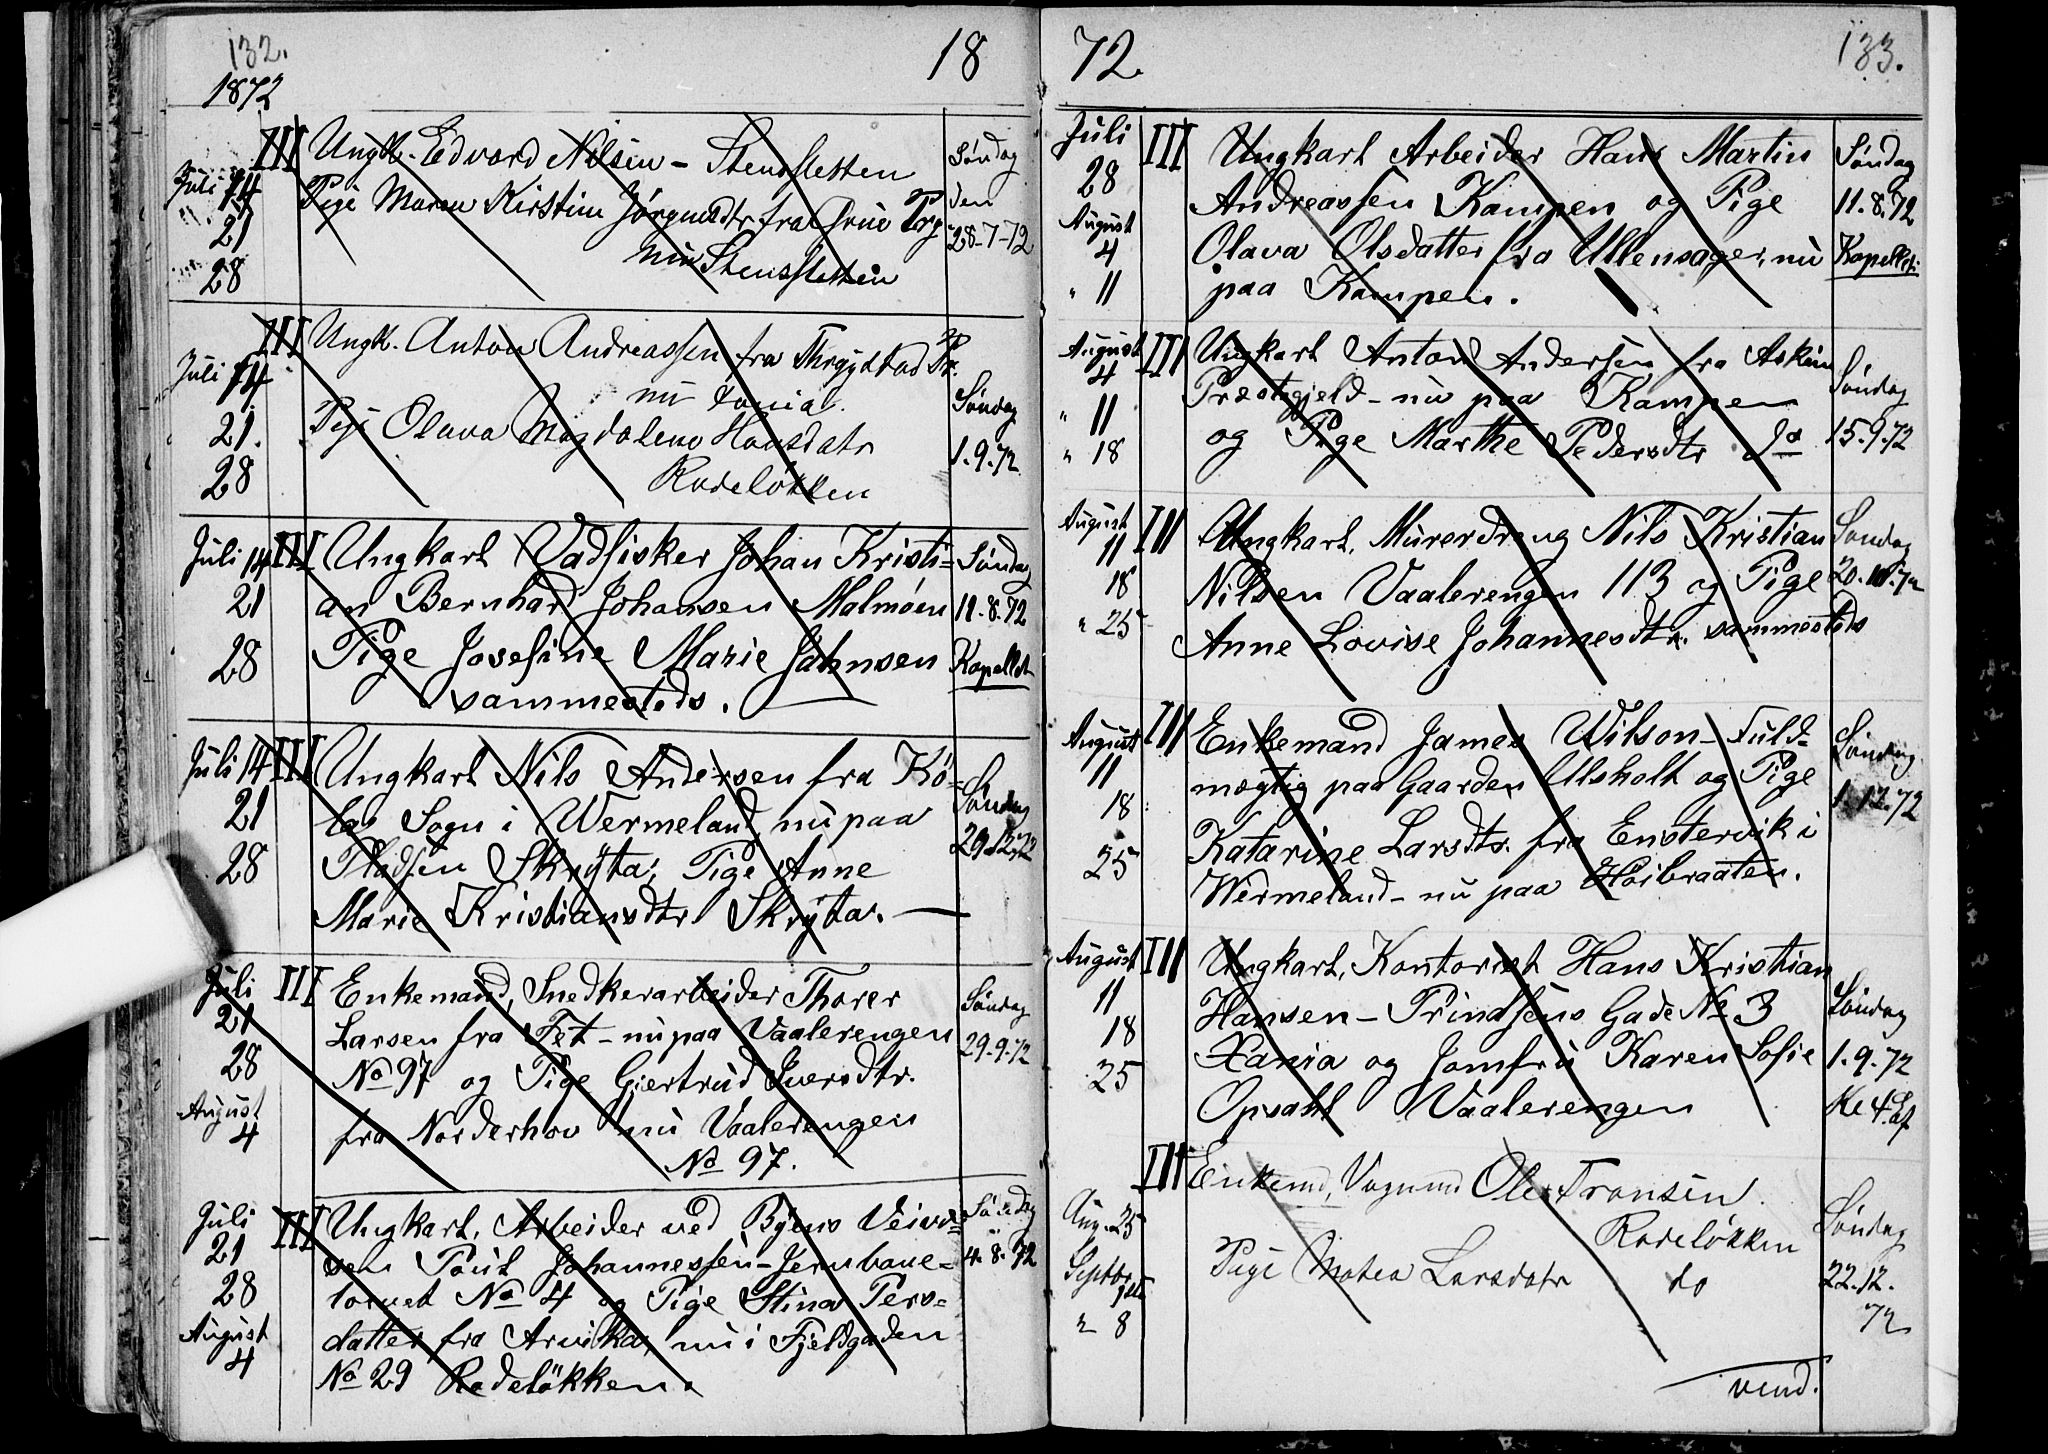 132.
18
1872
Juli 14
21
28
III
Ungk. Edvard Nilsen - Stensletten
Pige Maren Kirstine Jörgensdtr fra Grue Prg
nu Stensletten
Söndag
den
28-7-72
Juli 14
21.
28
III
Ungk. Anton Andreassen fra Thrygstad Pr.
nu Xania.
Pige Olava Magdalene Hansdatr
Rodelökken
Söndag
1.9.72
Juli 14
21
28
III
Ungkarl Vadfisker Johan Kristi=
an Bernhard Johansen Malmöen
Pige Josefine Marie Jahnsen
sammesteds.
Söndag
11.8.72
Kapellet
Juli 14
21
28
III
Ungkarl Nils Andersen fra Kö=
la Sogn i Wermeland, nu paa
Pladsen Skrÿta; Pige Anne
Marie Kristiansdtr Skrÿta.
Söndag
29.12.72
Juli
21
28
August
4
III
Enkemand, Snedkerarbeider Thorer
Larsen fra Fet - nu paa Vaalerengen
No 97 og Pige Giertrud Iversdtr.
fra Norderhov nu Vaalerengen
No 97.
Söndag
29.9.72
Juli
21
28
August
4
III
Ungkarl, Arbeider ved Byens Veivæ=
sen Paul Johannessen - Jernbane=
torvet No 4 og Pige Stina Pers=
datter fra Arvika, nu i Fjeldgaden
No 29 Rodelökken.
Söndag
4.8.72
72.
133.
Juli
28
August
4
" 11
III
Ungkarl Arbeider Hans Martin
Andreassen Kampen og Pige
Olava Olsdatter fra Ullensager, nu
paa Kampen.
Söndag
11.8.72
Kapellet
August
4
" 11
" 18
III
Ungkarl Anton Andersen fra Askim
Præstegjeld - nu paa Kampen
og Pige Marthe Pedersdtr do
Söndag
15.9.72
August
11
18
" 25
III
Ungkarl, Murerdreng Nils Kristian
Nilsen Vaalerengen 113 og Pige
Anne Lovise Johannesdtr. sammesteds
Söndag
20.10.72
August
11
18
25
III
Enkemand James Wilson - Fuld=
mægtig paa Gaarden Ulsholt og Pige
Katarine Larsdtr. fra Enstervik i
Wermeland - nu paa Höibraaten.
Söndag
1.12.72
August
11
18
25
III
Ungkarl, Kontorist Hans Kristian
Hansen - Prindsens Gade No 3
Xania og Jomfru Karen Sofie
Opsahl Vaalerengen
Söndag
1.9.72
Kl 4
Aug. 25
Septbr
1ste
" 8
III
Enkemd, Vognmd Ole Fransen
Rodelökken
Pige Mathea Larsdatr do
Söndag
22.12.
72
vend.